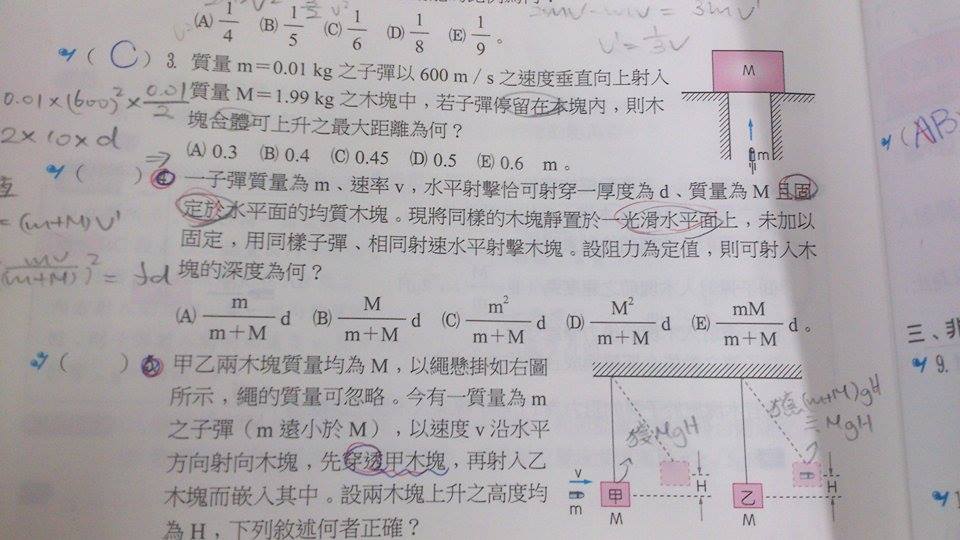 (A) 1/4 (B) 1/5 (C) 1/6 (D) 1/8 (E) 1/9 。
3mv'
v'=1/3v
( C ) 3. 質量 m=0.01 kg 之子彈以 600 m/s 之速度垂直向上射入
質量 M=1.99 kg 之木塊中,若子彈停留在木塊內,則木
塊合體可上升之最大距離為何?
(A) 0.3 (B) 0.4 (C) 0.45 (D) 0.5 (E) 0.6 m。
0.01×(600)²×0.01/2
2×10×d
M
m
( ) 4. 一子彈質量為 m、速率 v,水平射擊恰可射穿一厚度為 d、質量為 M 且固
定於水平面的均質木塊。現將同樣的木塊靜置於一光滑水平面上,未加以
固定,用同樣子彈、相同射速水平射擊木塊。設阻力為定值,則可射入木
塊的深度為何?
=(m+M)v'
(mv/(m+M))²=fd
(A) m/(m+M) d (B) M/(m+M) d (C) m²/(m+M) d (D) M²/(m+M) d (E) mM/(m+M) d。
( ) 5. 甲乙兩木塊質量均為 M,以繩懸掛如右圖
所示,繩的質量可忽略。今有一質量為 m
之子彈(m 遠小於 M),以速度 v 沿水平
方向射向木塊,先穿透甲木塊,再射入乙
木塊而嵌入其中。設兩木塊上升之高度均
為 H,下列敘述何者正確?
MgH
(m+M)gH
MgH
v
m
甲
M
H
乙
M
H
(AB
三、非
9.